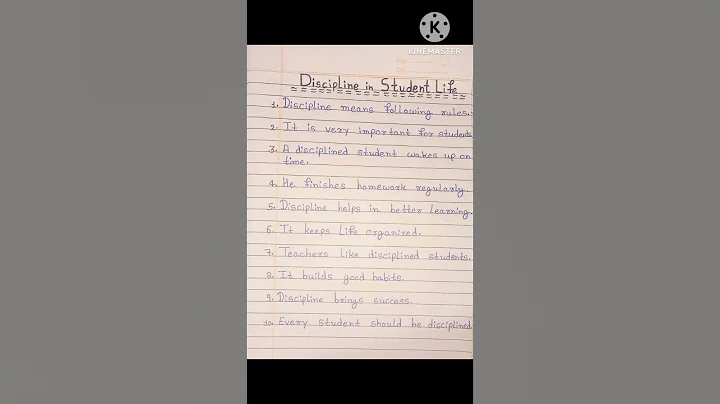 KINEMASTER
Discipline in Student Life
1. Discipline means following rules.
2. It is very important for students
3. A disciplined student wakes up on
time.
4. He finishes homework regularly.
5. Discipline helps in better learning.
6. It keeps life organized.
7. Teachers like disciplined students.
8. It builds good habits.
9. Discipline brings success.
10. Every student should be disciplined